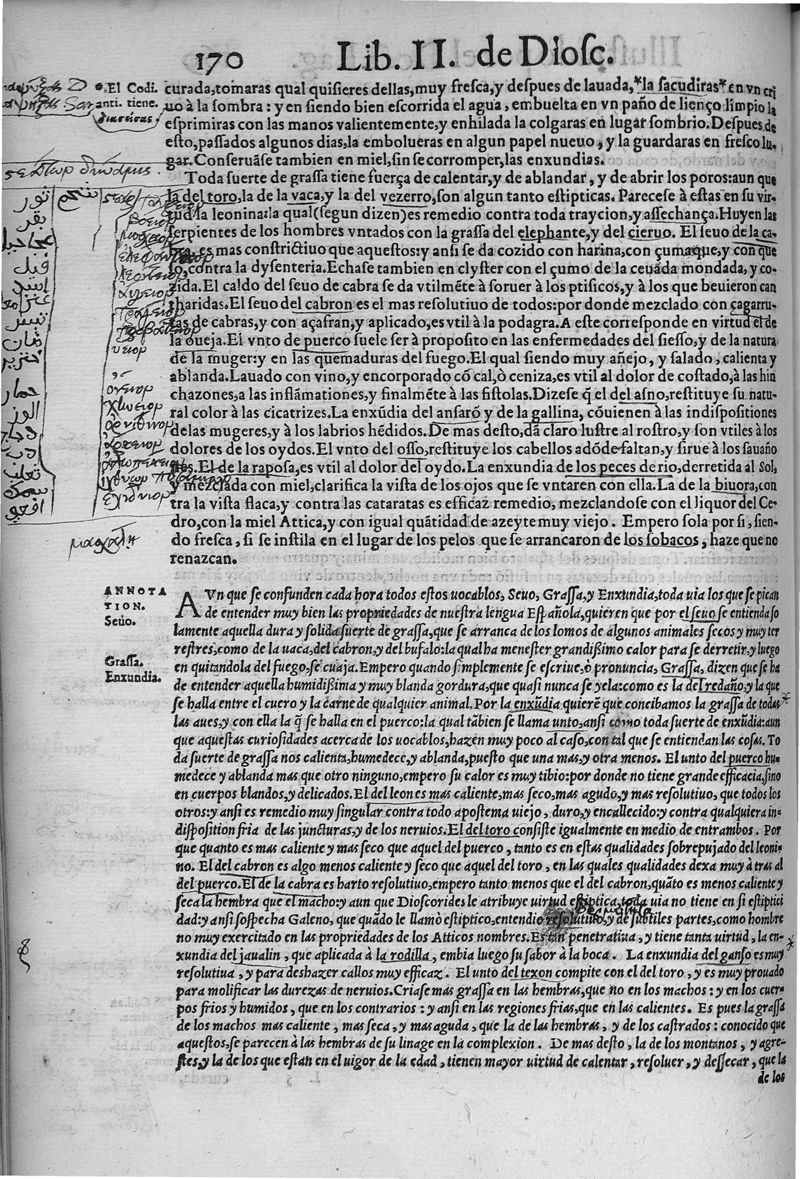 170 Lib. II. de Diosc.
*El Codi. anti. tiene.
διασείσας
curada, tomaras qual quisieres dellas, muy fresca, y despues de lauada, *la sacudiras* en vn cri
uo à la sombra: y en siendo bien escorrida el agua, embuelta en vn paño de lienço limpio la
esprimiras con las manos valientemente, y enhilada la colgaras en lugar sombrio. Despues de
esto, passados algunos dias, la embolueras en algun papel nueuo, y la guardaras en fresco lu-
gar. Conseruãse tambien en miel, sin se corromper, las enxundias.
Toda suerte de grassa tiene fuerça de calentar, y de ablandar, y de abrir los poros: aun que
la del toro, la de la vaca, y la del vezerro, son algun tanto estipticas. Parecese à estas en su vir-
tud la leonina: la qual (segun dizen) es remedio contra toda traycion, y assechança. Huyen las
serpientes de los hombres vntados con la grassa del elephante, y del cieruo. El seuo de la ca-
bra, es mas constrictiuo que aquestos: y ansi se da cozido con harina, con çumaque, y con que
so, contra la dysenteria. Echase tambien en clyster con el çumo de la ceuada mondada, y co-
zida. El caldo del seuo de cabra se da vtilmẽte à soruer à los ptisicos, y à los que beuieron can
tharidas. El seuo del cabron es el mas resolutiuo de todos: por donde mezclado con cagarru-
tas de cabras, y con açafran, y aplicado, es vtil à la podagra. A este corresponde en virtud el de
la oueja. El vnto de puerco suele ser à proposito en las enfermedades del siesso, y de la natura
de la muger: y en las quemaduras del fuego. El qual siendo muy añejo, y salado, calienta y
ablanda. Lauado con vino, y encorporado cõ cal, ò ceniza, es vtil al dolor de costado, à las hin
chazones, a las inflãmationes, y finalmẽte à las fistolas. Dizese q̃ el del asno, restituye su natu-
ral color à las cicatrizes. La enxũdia del ansarõ y de la gallina, cõuienen à las indispositiones
delas mugeres, y à los labrios hẽdidos. De mas desto, dã claro lustre al rostro, y son vtiles à los
dolores de los oydos. El vnto del osso, restituye los cabellos adõde faltan, y sirue à los sauaño
nes. El de la raposa, es vtil al dolor del oydo. La enxundia de los peces de rio, derretida al Sol,
y mezclada con miel, clarifica la vista de los ojos que se vntaren con ella. La de la biuora, con
tra la vista flaca, y contra las cataratas es efficaz remedio, mezclandose con el liquor del Ce-
dro, con la miel Attica, y con igual quãtidad de azeyte muy viejo. Empero sola por si, sien-
do fresca, si se instila en el lugar de los pelos que se arrancaron de los sobacos, haze que no
renazcan.
ANNOTA
TION.
Seuo.
Grassa.
Enxundia.
AVn que se confunden cada hora todos estos uocablos, Seuo, Grassa, y Enxundia, toda uia los que se pican
de entender muy bien las propriedades de nuestra lengua Española, quieren que por el seuo se entienda so
lamente aquella dura y solida suerte de grassa, que se arranca de los lomos de algunos animales secos y muy ter
restres, como de la uaca, del cabron, y del bufalo: la qual ha menester grandißimo calor para se derretir, y luego
en quitandola del fuego, se cuaja. Empero quando simplemente se escriue, ò pronuncia, Grassa, dizen que se ha
de entender aquella humidißima y muy blanda gordura, que quasi nunca se yela: como es la del redaño, y la que
se halla entre el cuero y la carne de qualquier animal. Por la enxũdia quierẽ que concibamos la grassa de todas
las aues, y con ella la q̃ se halla en el puerco: la qual tãbien se llama unto, ansi como toda suerte de enxũdia: aun
que aquestas curiosidades acerca de los uocablos, hazen muy poco al caso, con tal que se entiendan las cosas. To
da suerte de grassa nos calienta, humedece, y ablanda, puesto que una mas, y otra menos. El unto del puerco hu-
medece y ablanda mas que otro ninguno, empero su calor es muy tibio: por donde no tiene grande efficacia, sino
en cuerpos blandos, y delicados. El del leon es mas caliente, mas seco, mas agudo, y mas resolutiuo, que todos los
otros: y ansi es remedio muy singular contra todo apostema uiejo, duro, y encallecido: y contra qualquiera in-
disposition fria de las juncturas, y de los neruios. El del toro consiste igualmente en medio de entrambos. Por
que quanto es mas caliente y mas seco que aquel del puerco, tanto es en estas qualidades sobrepujado del leoni-
no. El del cabron es algo menos caliente y seco que aquel del toro, en las quales qualidades dexa muy à tras al
del puerco. El de la cabra es harto resolutiuo, empero tanto menos que el del cabron, quãto es menos caliente y
seca la hembra que el macho: y aun que Dioscorides le atribuye virtud estiptica, toda uia no tiene en si estiptici
dad: y ansi sospecha Galeno, que quãdo le llamò estiptico, entendio resolutiuo, y de subtiles partes, como hombre
no muy exercitado en las propriedades de los Atticos nombres. Es tan penetratiua, y tiene tanta virtud, la en-
xundia del jaualin, que aplicada à la rodilla, embia luego su sabor à la boca. La enxundia del ganso es muy
resolutiua, y para deshazer callos muy efficaz. El unto del texon compite con el del toro, y es muy prouado
para molificar las durezas de neruios. Criase mas grassa en las hembras, que no en los machos: y en los cuer
pos frios y humidos, que en los contrarios: y ansi en las regiones frias, que en las calientes. Es pues la grassa
de los machos mas caliente, mas seca, y mas aguda, que la de las hembras, y de los castrados: conocido que
aquestos, se parecen à las hembras de su linage en la complexion. De mas desto, la de los montanos, y agre-
stes, y la de los que estan en el uigor de la edad, tienen mayor virtud de calentar, resoluer, y dessecar, que la
de los
ثور
بقر
فيل
اسد
تيس
ضان
خنزير
حمار
الوز
دجاج
دب
ثعلب
سمك
افعى
شحم